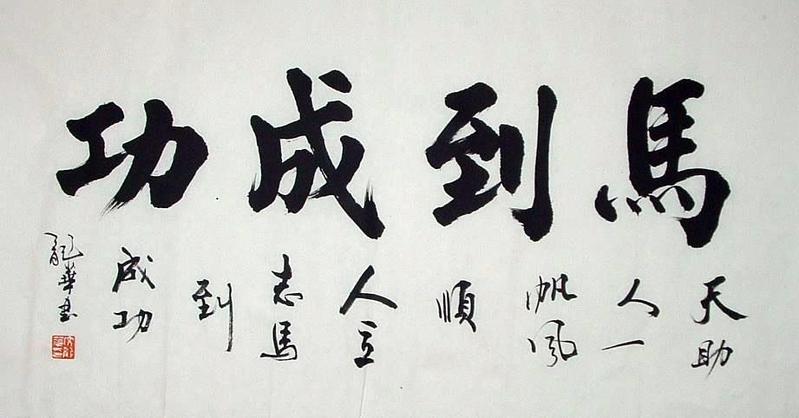 馬到成功
天助
人一
帆風
順
人立
志馬
到
成功
龍華書